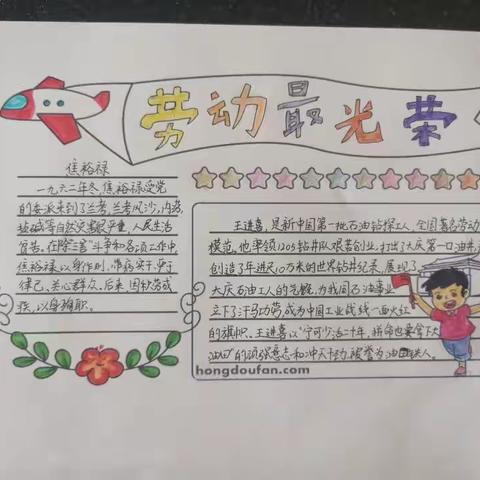 劳动最光荣
焦裕禄
一九六二年冬,焦裕禄受党
的委派来到了兰考,兰考风沙,内涝,
盐碱等自然灾害很严重,人民生活
贫苦。在除"三害"斗争和各项工作中,
焦裕禄以身作则,带病实干,严于
律己,关心群众,后来,因积劳成
疾,以身殉职。
王进喜,是新中国第一批石油钻探工人,全国著名劳动
模范,他率领1205钻井队艰苦创业,打出了大庆第一口油井,
创造了年进尺10万米的世界钻井纪录,展现了
大庆石油工人的气概,为我国石油事业
立下了汗马功劳,成为中国工业战线一面火红
的旗帜。王进喜以"宁可少活二十年,拼命也要拿下大
油田"的顽强意志和冲天干劲,被誉为油田铁人。
hongdoufan.com